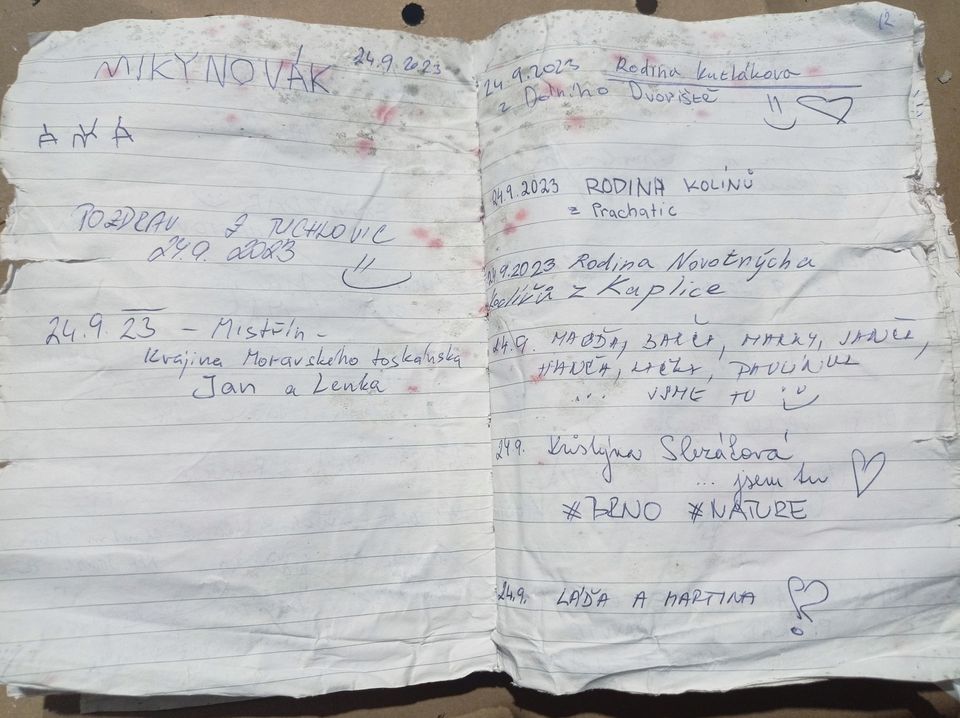 MIKY NOVÁK 24.9.2023
POZDRAV Z TUCHLOVIC
24.9. 2023
24.9. 23 - Mistřín -
Krajina Moravského toskánska
Jan a Lenka
12
24.9.2023 Rodina Kutlákova
z Dolního Dvořiště
24.9.2023 RODINA KOLÍNŮ
z Prachatic
24.9.2023 Rodina Novotných a
z Kaplice
24.9. MAĎĎA, BARČA, HARRY, JANČA,
HANČA, KAČKA, PAVLÍNKA
... JSME TU
24.9. Kristýna Slezáčová
... jsem tu
#BRNO #NATURE
24.9. LÁĎA A MARTINA